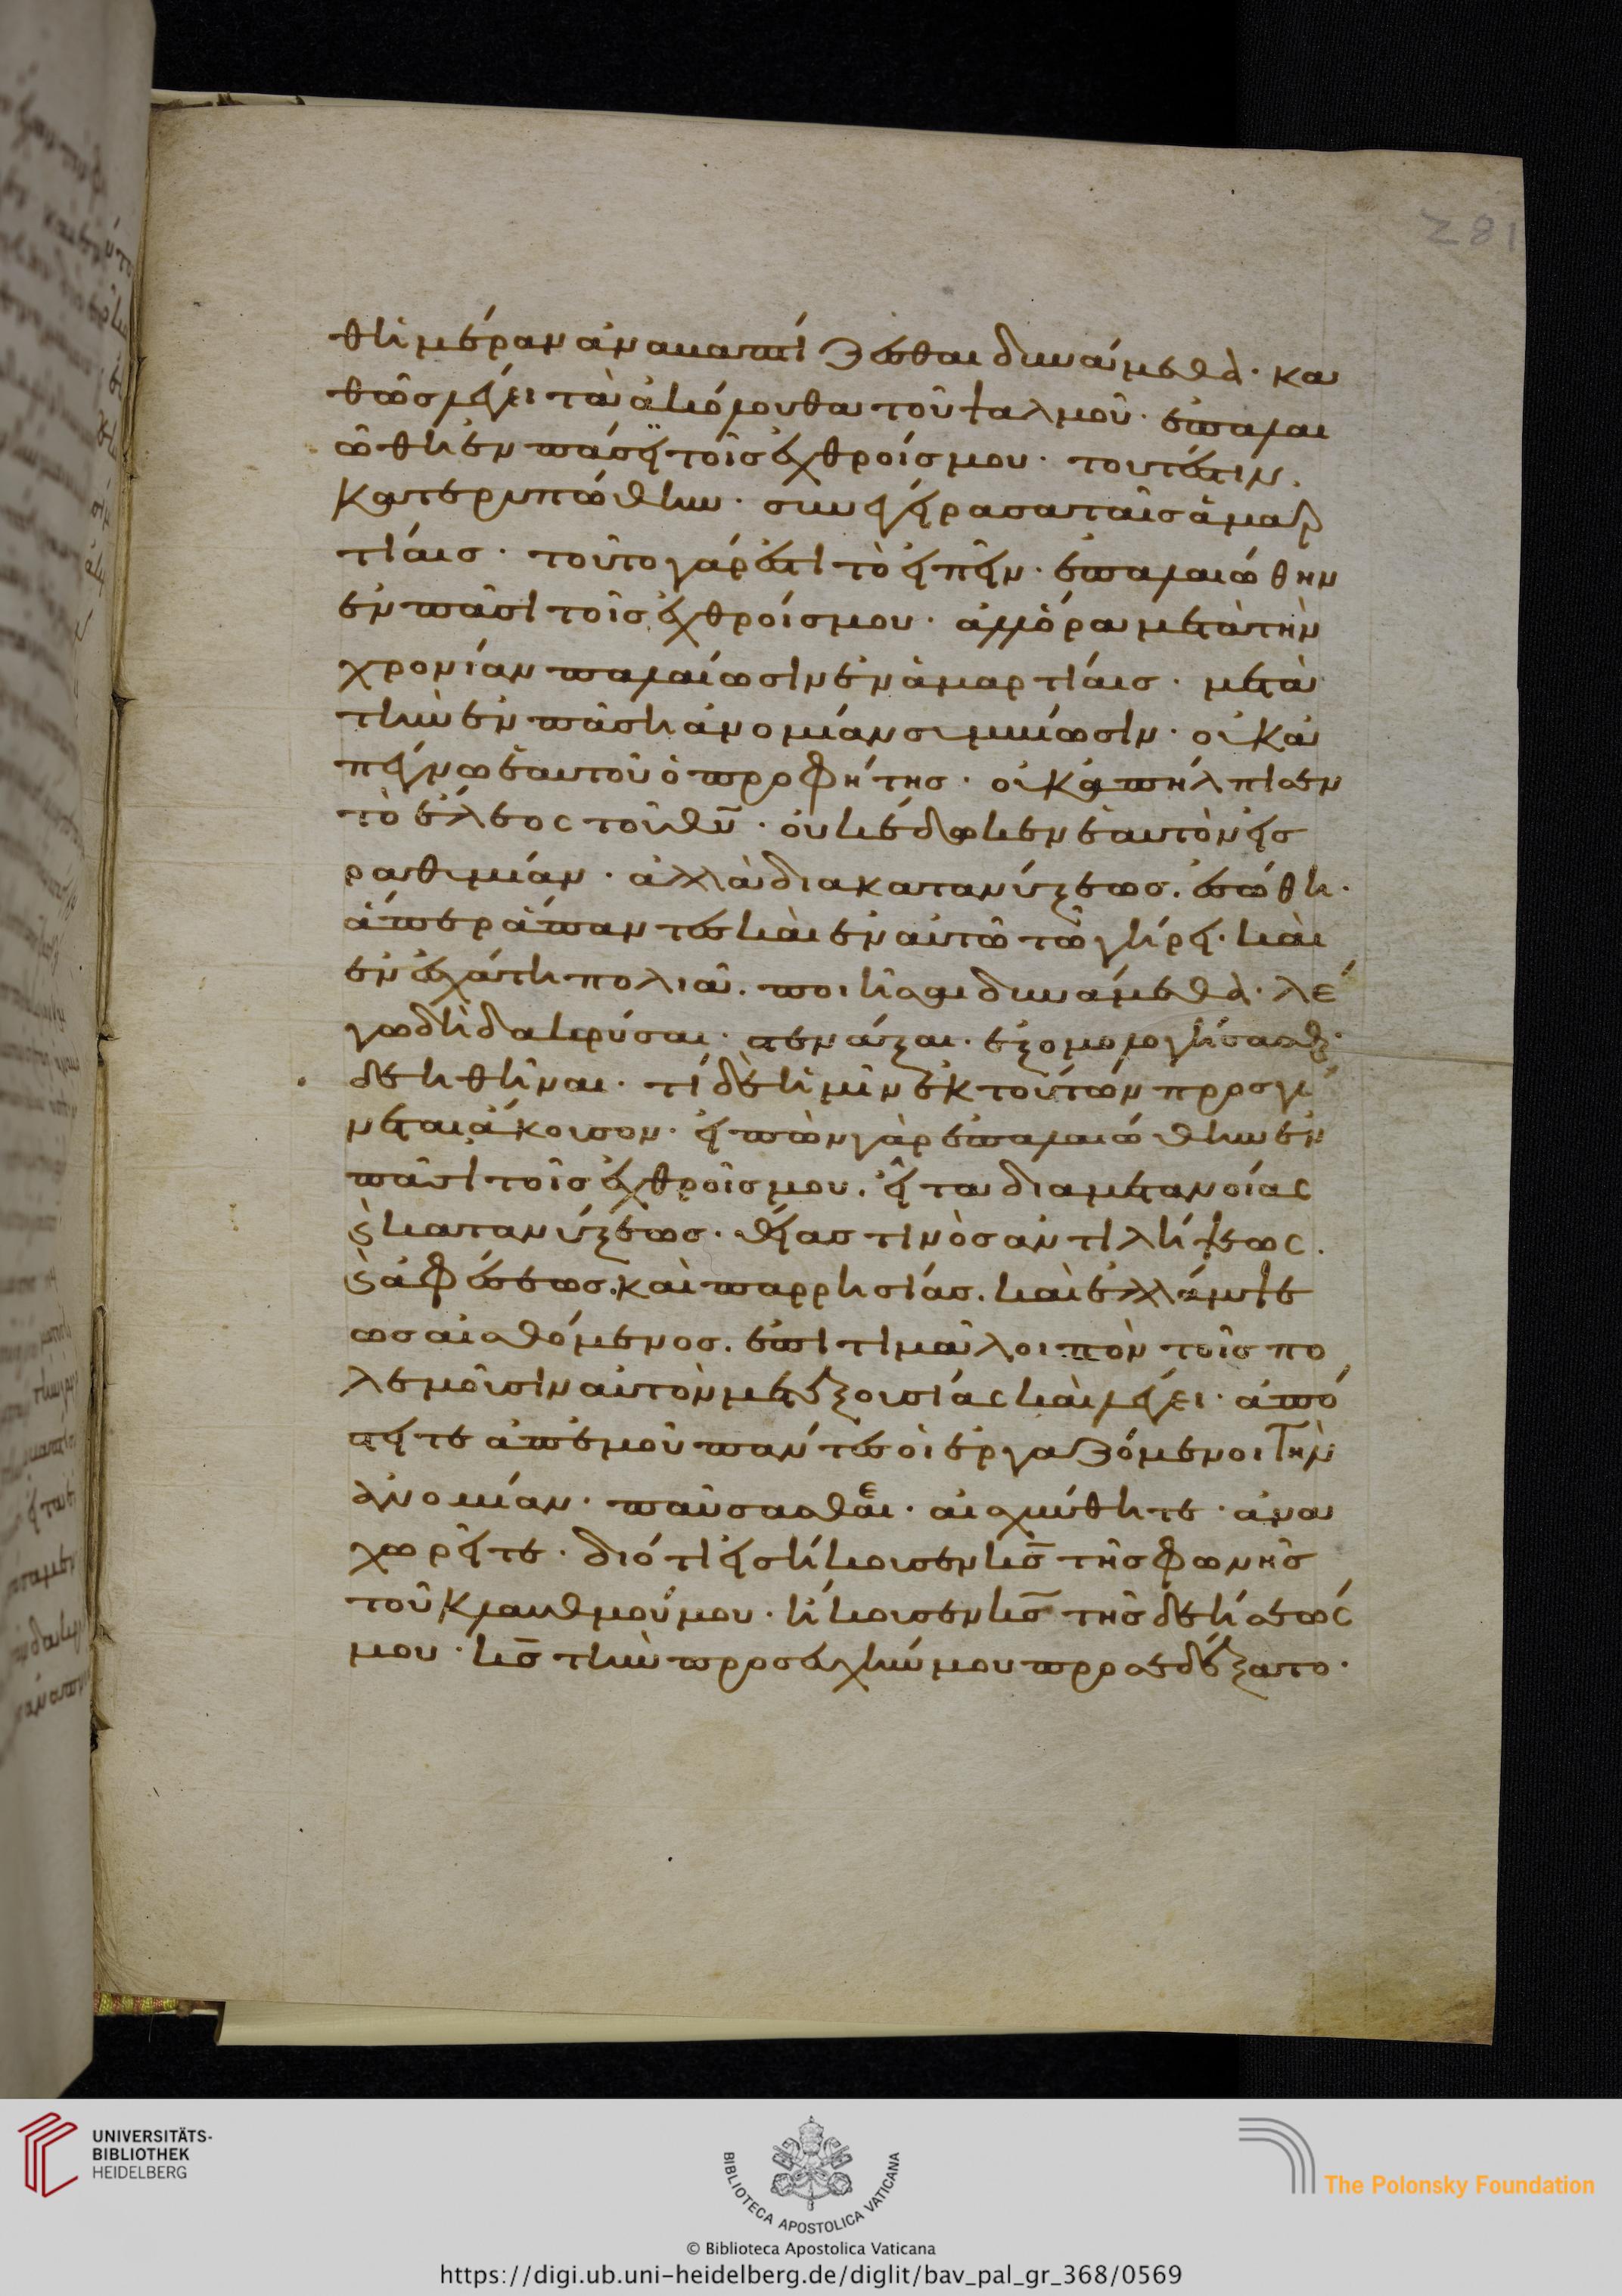 281
θημέραν ἀνακαινίζεσθαι δυνάμεθα· κα
θὼς λέγει τὰ ἀκόλουθα τοῦ ψαλμοῦ· ἐπαλαι
ώθη ἐν πάσει τοῖς ἐχθροῖς μου· τουτέστιν.
κατερυπώθην· συνεγείρασα ταῖς ἁμαρ
τίαις· τοῦτο γάρ ἐστι τὸ εἰπεῖν· ἐπαλαιώθην
ἐν πᾶσι τοῖς ἐχθροῖς μου· ἀλλ' ὅρα μετὰ τὴν
χρονίαν παλαίωσιν ἐν ἁμαρτίαις· μετὰ
τὴν ἐν πάση ἀνομίαν σιμμίωσιν· οὐκ ἀ
πέγνω ἑαυτοῦ ὁ προφήτης· οὐκ ἀπήλπισεν
τὸ ἔλεος τοῦ θυ̅· οὐκ ἔδωκεν ἑαυτὸν εἰς
ραθυμίαν· ἀλλὰ διὰ κατανύξεως. ἐσώθη·
ἅπερ ἅπαντες καὶ ἐν αὐτῶ τῶ γήρει· καὶ
ἐν ἐσχάτη πολιᾶ. ποιῆσαι δυνάμεθα· λέ
γω δὴ δακρύσαι· στενάξαι· ἐξομολογήσασθ·
δεηθῆναι· τί δὲ ἡμῖν ἐκ τούτων προσγί
νεται ἄκουσον· εἰπὼν γὰρ ἐπαλαιώθην ἐν
πᾶσι τοῖς ἐχθροῖς μου. εἶτα διὰ μετανοίας
ϗ κατανύξεως· θείας τινὸς ἀντιλήψεως.
ϗ ἀφέσεως. καὶ παρρησίας. καὶ ἐλλάμψε
ως αἰσθόμενος. ἐπιτιμᾶ λοιπὸν τοῖς πο
λεμοῦσιν αὐτὸν μετ' ἐξουσίας καὶ λέγει· ἀπό
στητε ἀπ' ἐμοῦ πάντες οἱ ἐργαζόμενοι τὴν
ἀνομίαν· παύσασθαι· αἰσχύνθητε· ἀνα
χωρεῖτε· διότι εἰσήκουσεν κς̅ τῆς φωνῆς
τοῦ κλαυθμοῦ μου· ἤκουσεν κς̅ τῆς δεήσεώς
μου· κς̅ τὴν προσευχήν μου προσεδέξατο·
UNIVERSITÄTS-
BIBLIOTHEK
HEIDELBERG
BIBLIOTECA APOSTOLICA VATICANA
The Polonsky Foundation
© Biblioteca Apostolica Vaticana
https://digi.ub.uni-heidelberg.de/diglit/bav_pal_gr_368/0569